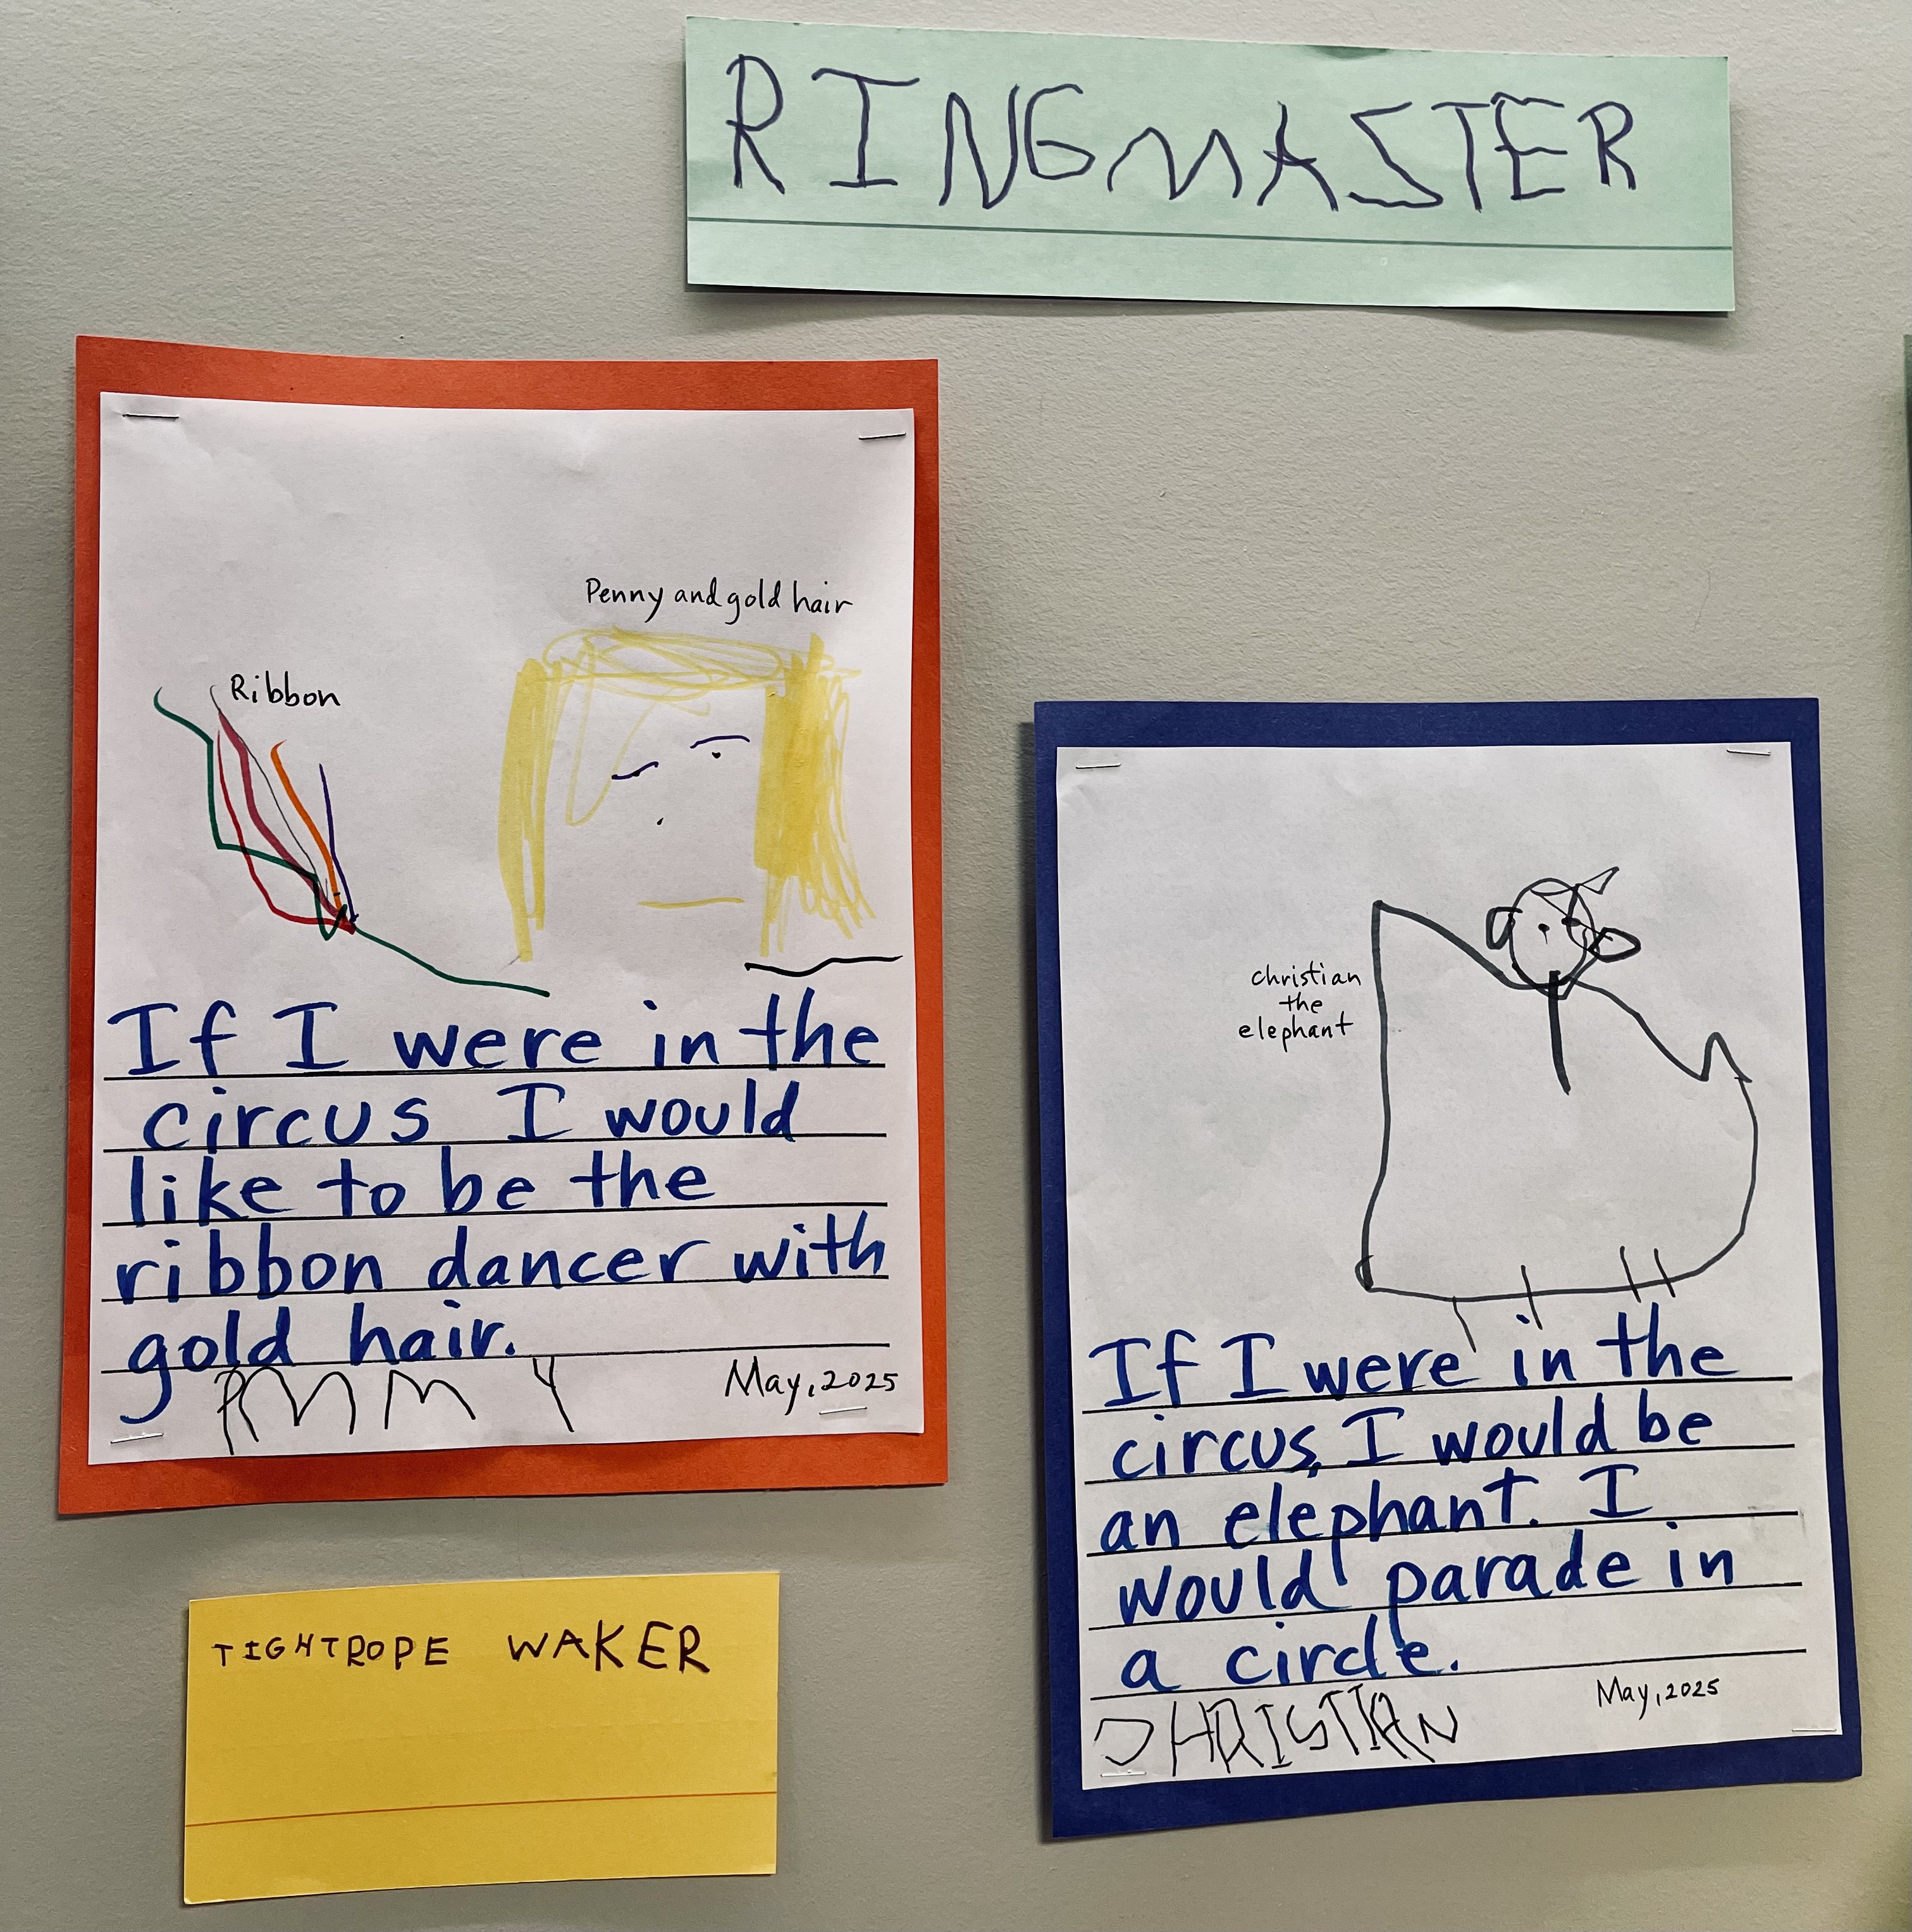 RINGMASTER
Penny and gold hair
Ribbon
If I were in the
circus I would
like to be the
ribbon dancer with
gold hair.
PMMY
May, 2025
TIGHTROPE WAKER
christian
the
elephant
If I were in the
circus, I would be
an elephant. I
would parade in
a circle.
CHRISTIAN
May, 2025